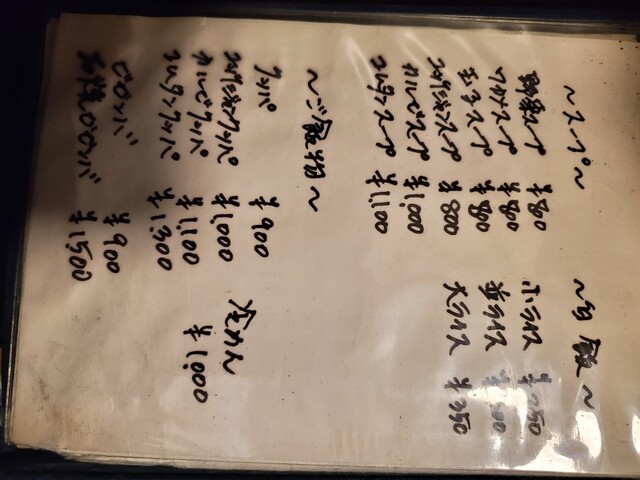 ～スープ～
野菜スープ ¥800
ワカメスープ ¥800
玉子スープ ¥800
スープ ¥800
カルビスープ ¥1,000
コムタンスープ ¥1,100
～飯～
小ライス ¥250
普ライス ¥300
大ライス ¥350
～ご飯類～
クッパ ¥900
クッパ ¥1,000
カルビクッパ ¥1,100
コムタンクッパ ¥1,300
ビビンバ ¥900
石焼ビビンバ ¥1500
冷めん
¥1,000